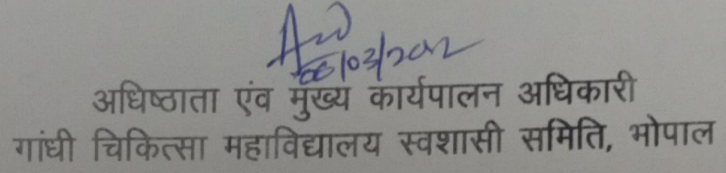 अधिष्ठाता एंव मुख्य कार्यपालन अधिकारी
गांधी चिकित्सा महाविद्यालय स्वशासी समिति, भोपाल